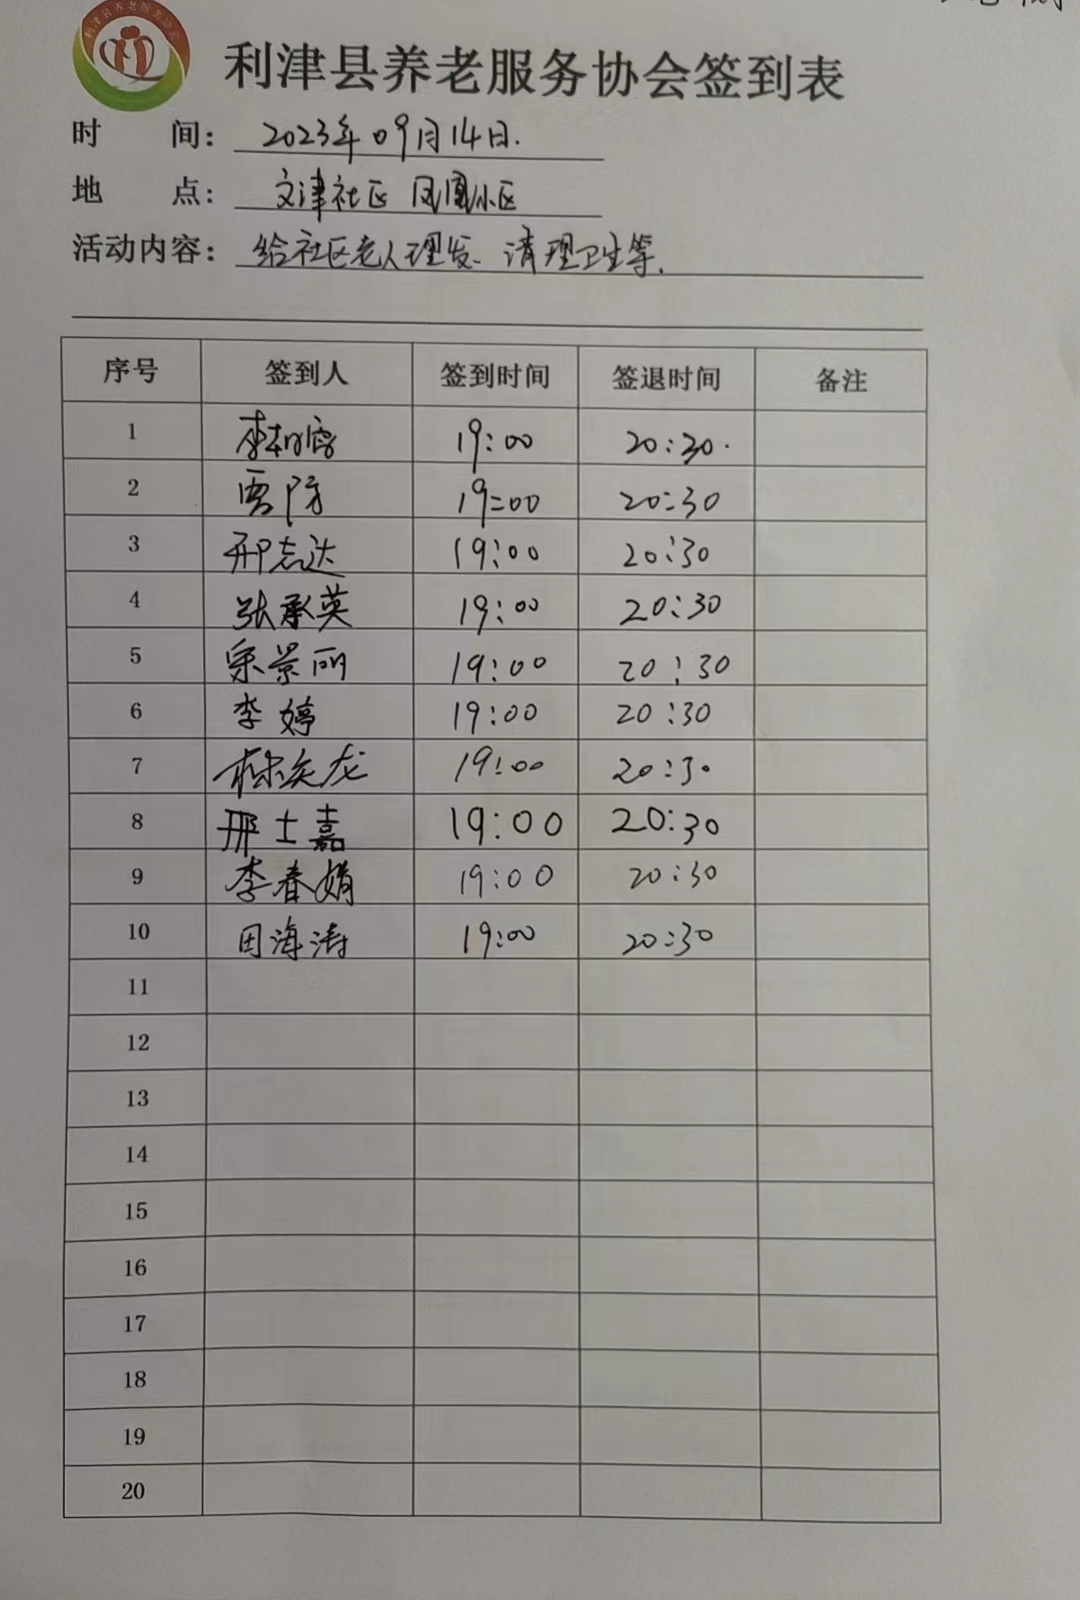 利津县养老服务协会
利津县养老服务协会签到表
时 间: 2023年09月14日.
地 点: 文津社区 凤凰小区
活动内容: 给社区老人理发、清理卫生等.
序号 签到人 签到时间 签退时间 备注
1 李 19:00 20:30.
2 贾防 19:00 20:30
3 邢志达 19:00 20:30
4 张承英 19:00 20:30
5 宋景丽 19:00 20:30
6 李婷 19:00 20:30
7 龙 19:00 20:30
8 邢士嘉 19:00 20:30
9 李春娟 19:00 20:30
10 田海涛 19:00 20:30
11
12
13
14
15
16
17
18
19
20